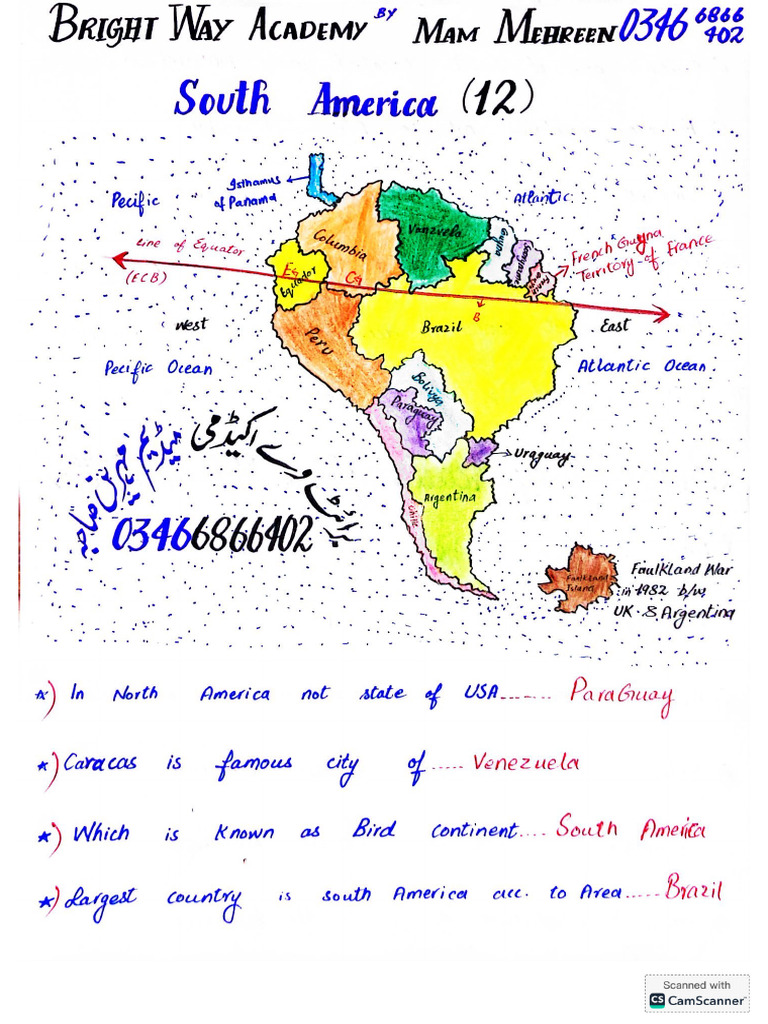 BRIGHT WAY ACADEMY BY MAM MEHREEN 0346 6866 402
South America (12)
Isthamus of Panama
Pecific
Atlantic
Line of Equator
(ECB)
Columbia
Venzvela
Guyna
French Guyna
Territory of France
Eq
Equador
Cq
B
West
Peru
Brazil
East
Pecific Ocean
Atlantic Ocean.
Bolivya
Paraguay
Uraguay
Argentina
Chile
برائٹ وے اکیڈمی
میڈیم مہرین صاحبہ
03466866402
Faulkland Island
Faulkland War
in 1982 b/w
UK & Argentina
*) In North America not state of USA....... Paraguay
*) Caracas is famous city of ..... Venezuela
*) Which is known as Bird continent.... South America
*) Largest country is south America acc. to Area..... Brazil
Scanned with
CS CamScanner